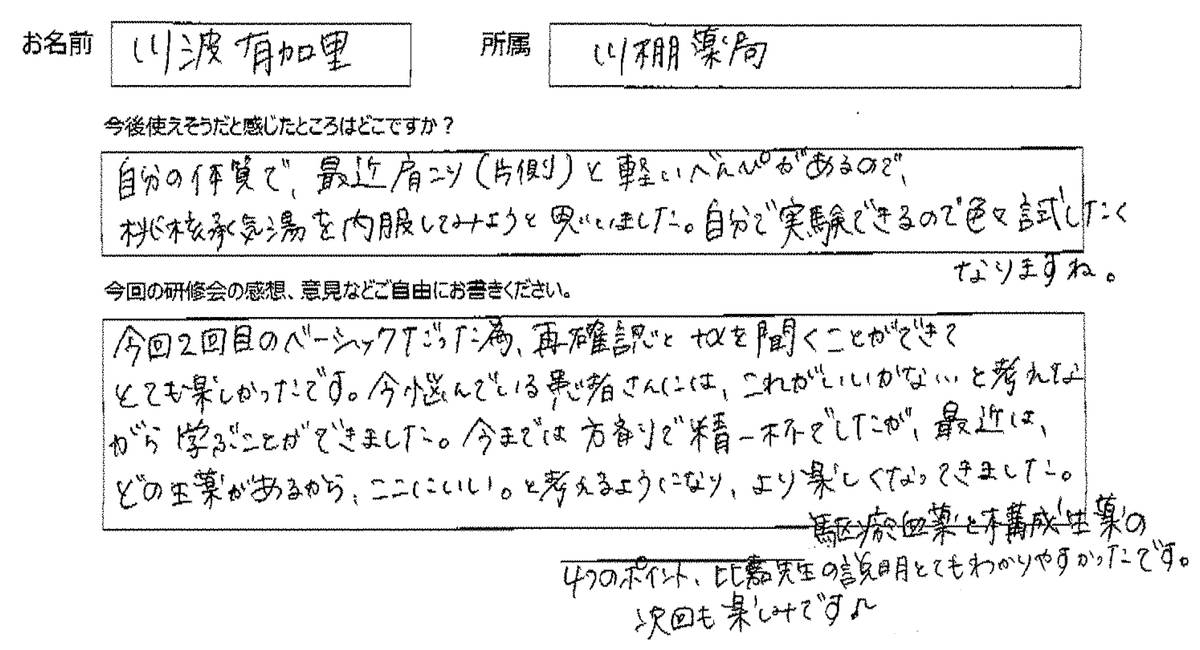 お名前 川波有加里 所属 川棚薬局
今後使えそうだと感じたところはどこですか？
自分の体質で、最近肩こり(片側)と軽いべんぴがあるので、
桃核承気湯を内服してみようと思いました。自分で実験できるので色々試したく
なりますね。
今回の研修会の感想、意見などご自由にお書きください。
今回2回目のベーシックだった為、再確認と+αを聞くことができて
とても楽しかったです。今悩んでいる患者さんには、これがいいかな…と考えな
がら学ぶことができました。今までは方剤で精一杯でしたが、最近は、
どの生薬があるから、ここにいい。と考えるようになり、より楽しくなってきました。
駆瘀血薬と構成生薬の
4つのポイント、比嘉先生の説明とてもわかりやすかったです。
次回も楽しみです♪